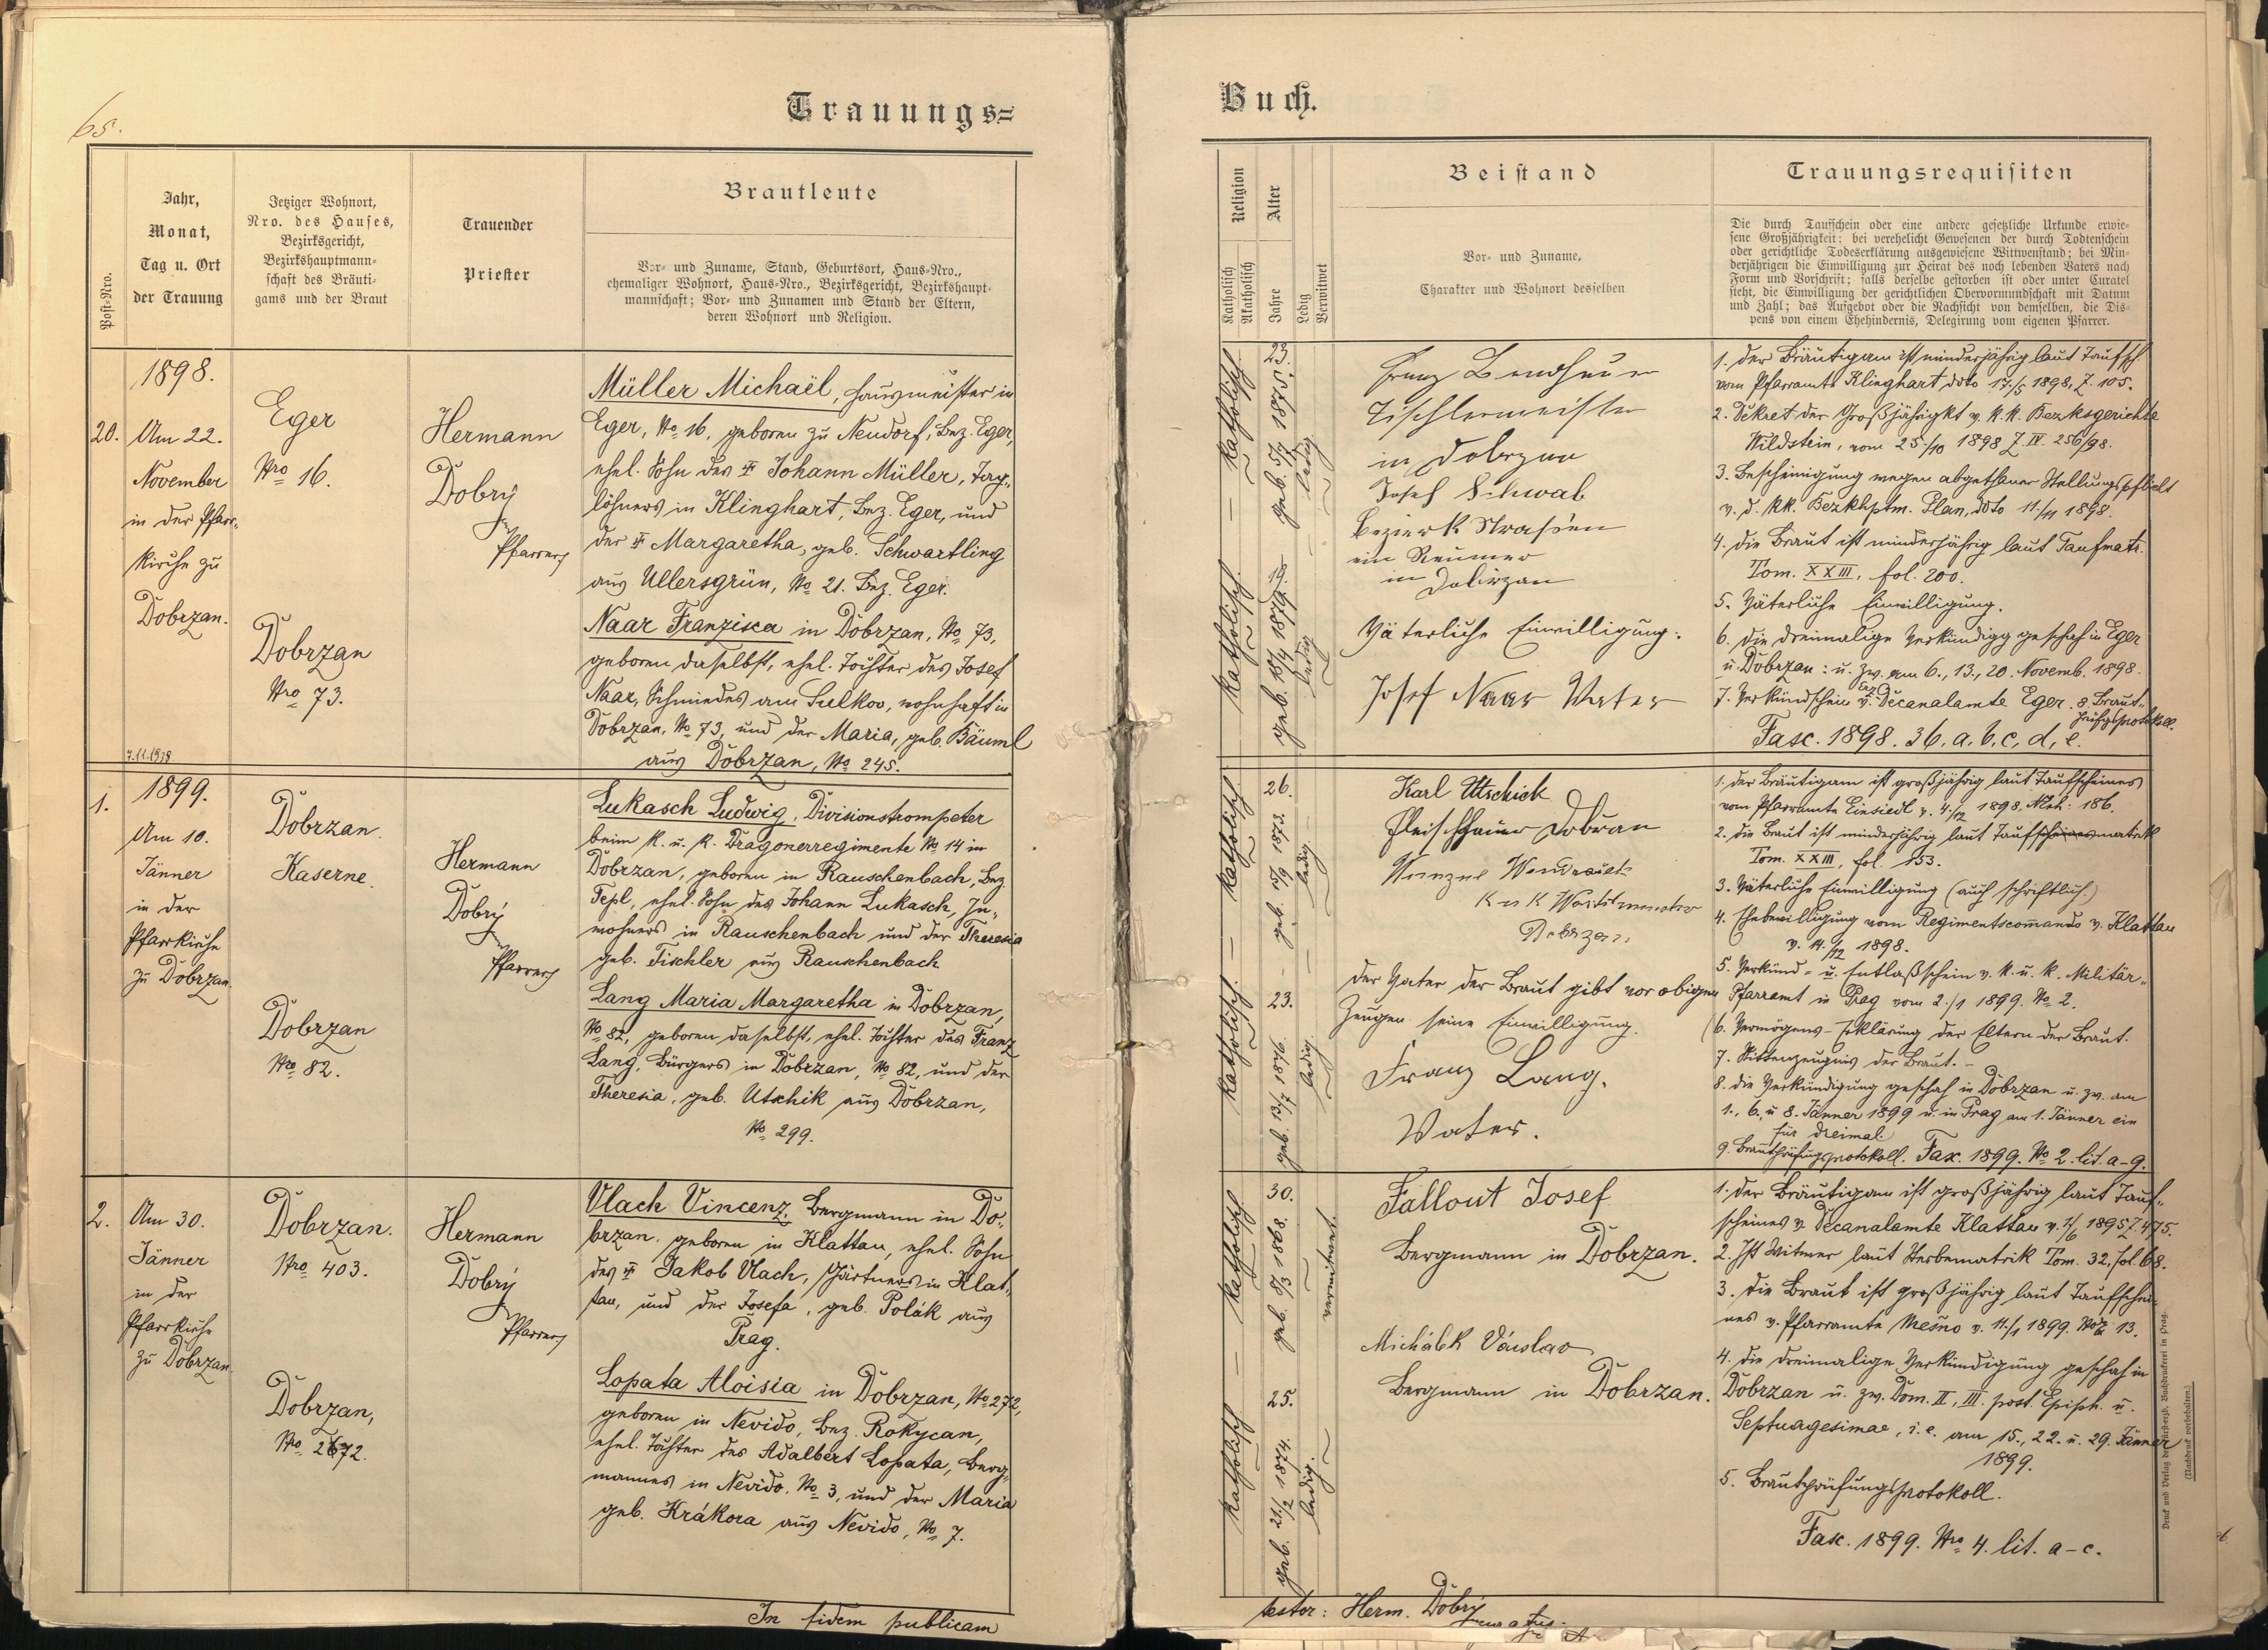 65.
Trauungs=
Post-Nro.
Jahr,
Monat,
Tag u. Ort
der Trauung
Jetziger Wohnort,
Nro. des Hauses,
Bezirksgericht,
Bezirkshauptmann=
schaft des Bräuti=
gams und der Braut
Trauender
Priester
Brautleute
Vor- und Zuname, Stand, Geburtsort, Haus-Nro.,
ehemaliger Wohnort, Haus-Nro., Bezirksgericht, Bezirkshaupt-
mannschaft; Vor- und Zunamen und Stand der Eltern,
deren Wohnort und Religion.
20.
1898.
Am 22.
November
in der Pfarr-
kirche zu
Dobrzan.
7.11.1939
Eger
Nro 16.
Dobrzan
Nro 73.
Hermann
Dobrý
Pfarrer
Müller Michaël, Hausmeister in
Eger, No 16, geboren zu Neudorf, Bez. Eger,
ehel. Sohn des † Johann Müller, Tag-
löhners in Klinghart, Bez. Eger, und
der † Margaretha, geb. Schwartling
aus Ullersgrün, No 21. Bez. Eger.
Naar Franzisca in Dobrzan, No 73,
geboren daselbst, ehel. Tochter des Josef
Naar, Schmiedes am Sulkov, wohnhaft in
Dobrzan, No 73, und der Maria, geb. Bäuml
aus Dobrzan, No 245.
1.
1899.
Am 10.
Jänner
in der
Pfarrkirche
zu Dobrzan.
Dobrzan.
Kaserne.
Dobrzan
Nro 82.
Hermann
Dobrý
Pfarrer
Lukasch Ludwig, Divisionstrompeter
beim K. u. K. Dragonerregimente No 14 in
Dobrzan, geboren in Rauschenbach, Bez.
Tepl, ehel. Sohn des Johann Lukasch, In-
wohners in Rauschenbach und der Theresia
geb. Tischler aus Rauschenbach
Lang Maria Margaretha in Dobrzan,
No 82, geboren daselbst, ehel. Tochter des Franz
Lang, Bürgers in Dobrzan, No 82, und der
Theresia, geb. Utschik aus Dobrzan,
No 299.
2.
Am 30.
Jänner
in der
Pfarrkirche
zu Dobrzan.
Dobrzan.
Nro 403.
Dobrzan,
No 272.
Hermann
Dobrý
Pfarrer
Vlach Vincenz, Bergmann in Do-
brzan, geboren in Klattau, ehel. Sohn
des † Jakob Vlach, Gärtners in Klat-
tau, und der Josefa, geb. Polák aus
Prag.
Lopata Aloisia in Dobrzan, No 272,
geboren in Nevido, Bez. Rokycan,
ehel. Tochter des Adalbert Lopata, Berg-
mannes in Nevido, No 3, und der Maria
geb. Krákora aus Nevido, No 7.
In fidem publicam
Buch.
Religion
Katholisch
Akatholisch
Alter
Jahre
Ledig
Verwitwet
Beistand
Vor- und Zuname,
Charakter und Wohnort desselben
Trauungsrequisiten
Die durch Taufschein oder eine andere gesetzliche Urkunde erwie-
sene Großjährigkeit; bei verehelicht Gewesenen der durch Todtenschein
oder gerichtliche Todeserklärung ausgewiesene Wittwenstand; bei Min-
derjährigen die Einwilligung zur Heirat des noch lebenden Vaters nach
Form und Vorschrift; falls derselbe gestorben ist oder unter Curatel
steht, die Einwilligung der gerichtlichen Obervormundschaft mit Datum
und Zahl; das Aufgebot oder die Nachsicht von demselben, die Dis-
pens von einem Ehehindernis, Delegirung vom eigenen Pfarrer.
katholisch. — katholisch.
23.
geb. 5/7 1875.
ledig
19.
geb. 18/4 1879.
ledig
Franz
Tischlermeister
in Dobrzan
Josef Schwab
Bezirk Straßen
ein Reumer
in Dobrzan
Väterliche Einwilligung:
Josef Naar Vater
1. Der Bräutigam ist minderjährig laut Taufsch
vom Pfarramte Klinghart, ddto 17./5 1898, Z. 105.
2. Dekret der Großjährigkt v. k. k. Bezksgerichte
Wildstein, vom 25./10 1898 Z. IV. 256/98.
3. Bescheinigung wegen abgethaner Stellungspflicht
v. d. kk. Bezkhptm. Plan, ddto 11./11 1898.
4. Die Braut ist minderjährig laut Taufmatr.
Tom. XXIII, fol. 200.
5. Väterliche Einwilligung.
6. Die dreimalige Verkündigg geschah in Eger
u. Dobrzan: u. zw. am 6., 13., 20. Novemb. 1898.
7. Verkündschein v. Erz-Decanalamte Eger. 8. Braut-
prüfgsprotokoll.
Fasc. 1898. 36. a, b, c, d, e.
katholisch. — katholisch.
26.
geb. 5/9 1873.
ledig
23.
geb. 13/7 1876.
ledig
Karl Utschick
Fleischhauer Dobřan
Wenzel
K u K Wachtmeister
Dobrzan
Der Vater der Braut gibt vor obigen
Zeugen seine Einwilligung.
Franz Lang.
Vater.
1. Der Bräutigam ist großjährig laut Taufscheines
vom Pfarramte Einsiedl v. 4./12 1898, 186.
2. Die Braut ist minderjährig laut Taufscheinesmatrik
Tom. XXIII, fol. 153.
3. Väterliche Einwilligung (auch schriftlich)
4. Ehebewilligung vom Regimentscomando v. Klattau
v. 14./12 1898.
5. Verkünd- u. Entlaßschein v. k. u. k. Militär-
Pfarramt in Prag vom 2./1 1899. No 2.
6. Vermögens-Erklärung der Eltern der Braut.
7. Sittenzeugnis der Braut.
8. Die Verkündigung geschah in Dobrzan u. zw. am
1., 6., u 8. Jänner 1899 u. in Prag am 1. Jänner ein
für dreimal.
9. Brautprüfungsprotokoll. Fax. 1899. No 2. lit. a-g.
katholisch — katholisch
30.
geb. 5/3 1868.
verwitwet.
25.
geb. 21/2 1874.
ledig.
Fallout Josef
Bergmann in Dobrzan.
Michálk Václav
Bergmann in Dobrzan.
1. Der Bräutigam ist großjährig laut Tauf-
scheines v. Decanalamte Klattau v. 1/6 1895 Z. 475.
2. Ist Witwer laut Sterbematrik Tom. 32, fol. 68.
3. Die Braut ist großjährig laut Taufschei-
nes v. Pfarramte Mešno v. 11./1 1899. 13.
4. Die dreimalige Verkündigung geschah in
Dobrzan u. zw. Dom. II, III. post. Epiph. u.
Septuagesimae, i. e. am 15., 22. u. 29. Jänner
1899.
5. Brautprüfungsprotokoll.
Fasc. 1899. Nro 4. lit. a-c.
testor: Herm. Dobrý
Druck und Verlag der fürsterzb. Buchdruckerei in Prag.
(Nachdruck vorbehalten.)